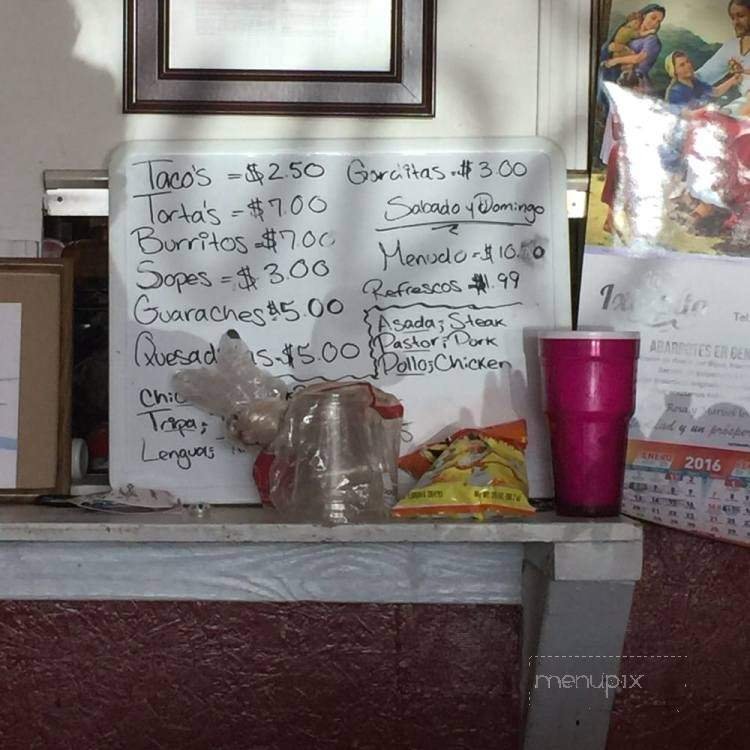 Taco's = $2.50
Torta's = $7.00
Burritos = $7.00
Sopes = $3.00
Guaraches $5.00
$5.00
Tripa;
Lengua;
Gorditas = $3.00
Sabado y Domingo
Menudo = $10.50
Refrescos $1.99
Asada; Steak
Pastor; Pork
Pollo; Chicken
Tel.
ABARROTES EN GEN
y un próspero
ENERO 2016
menupix